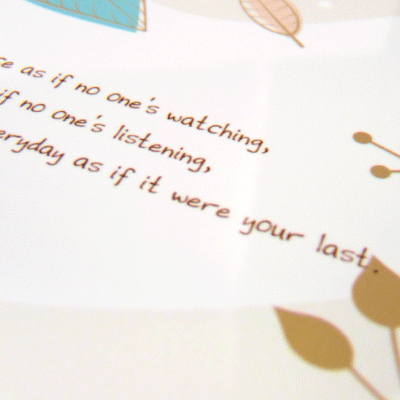 as if no one's watching,
if no one's listening,
as if it were your last.